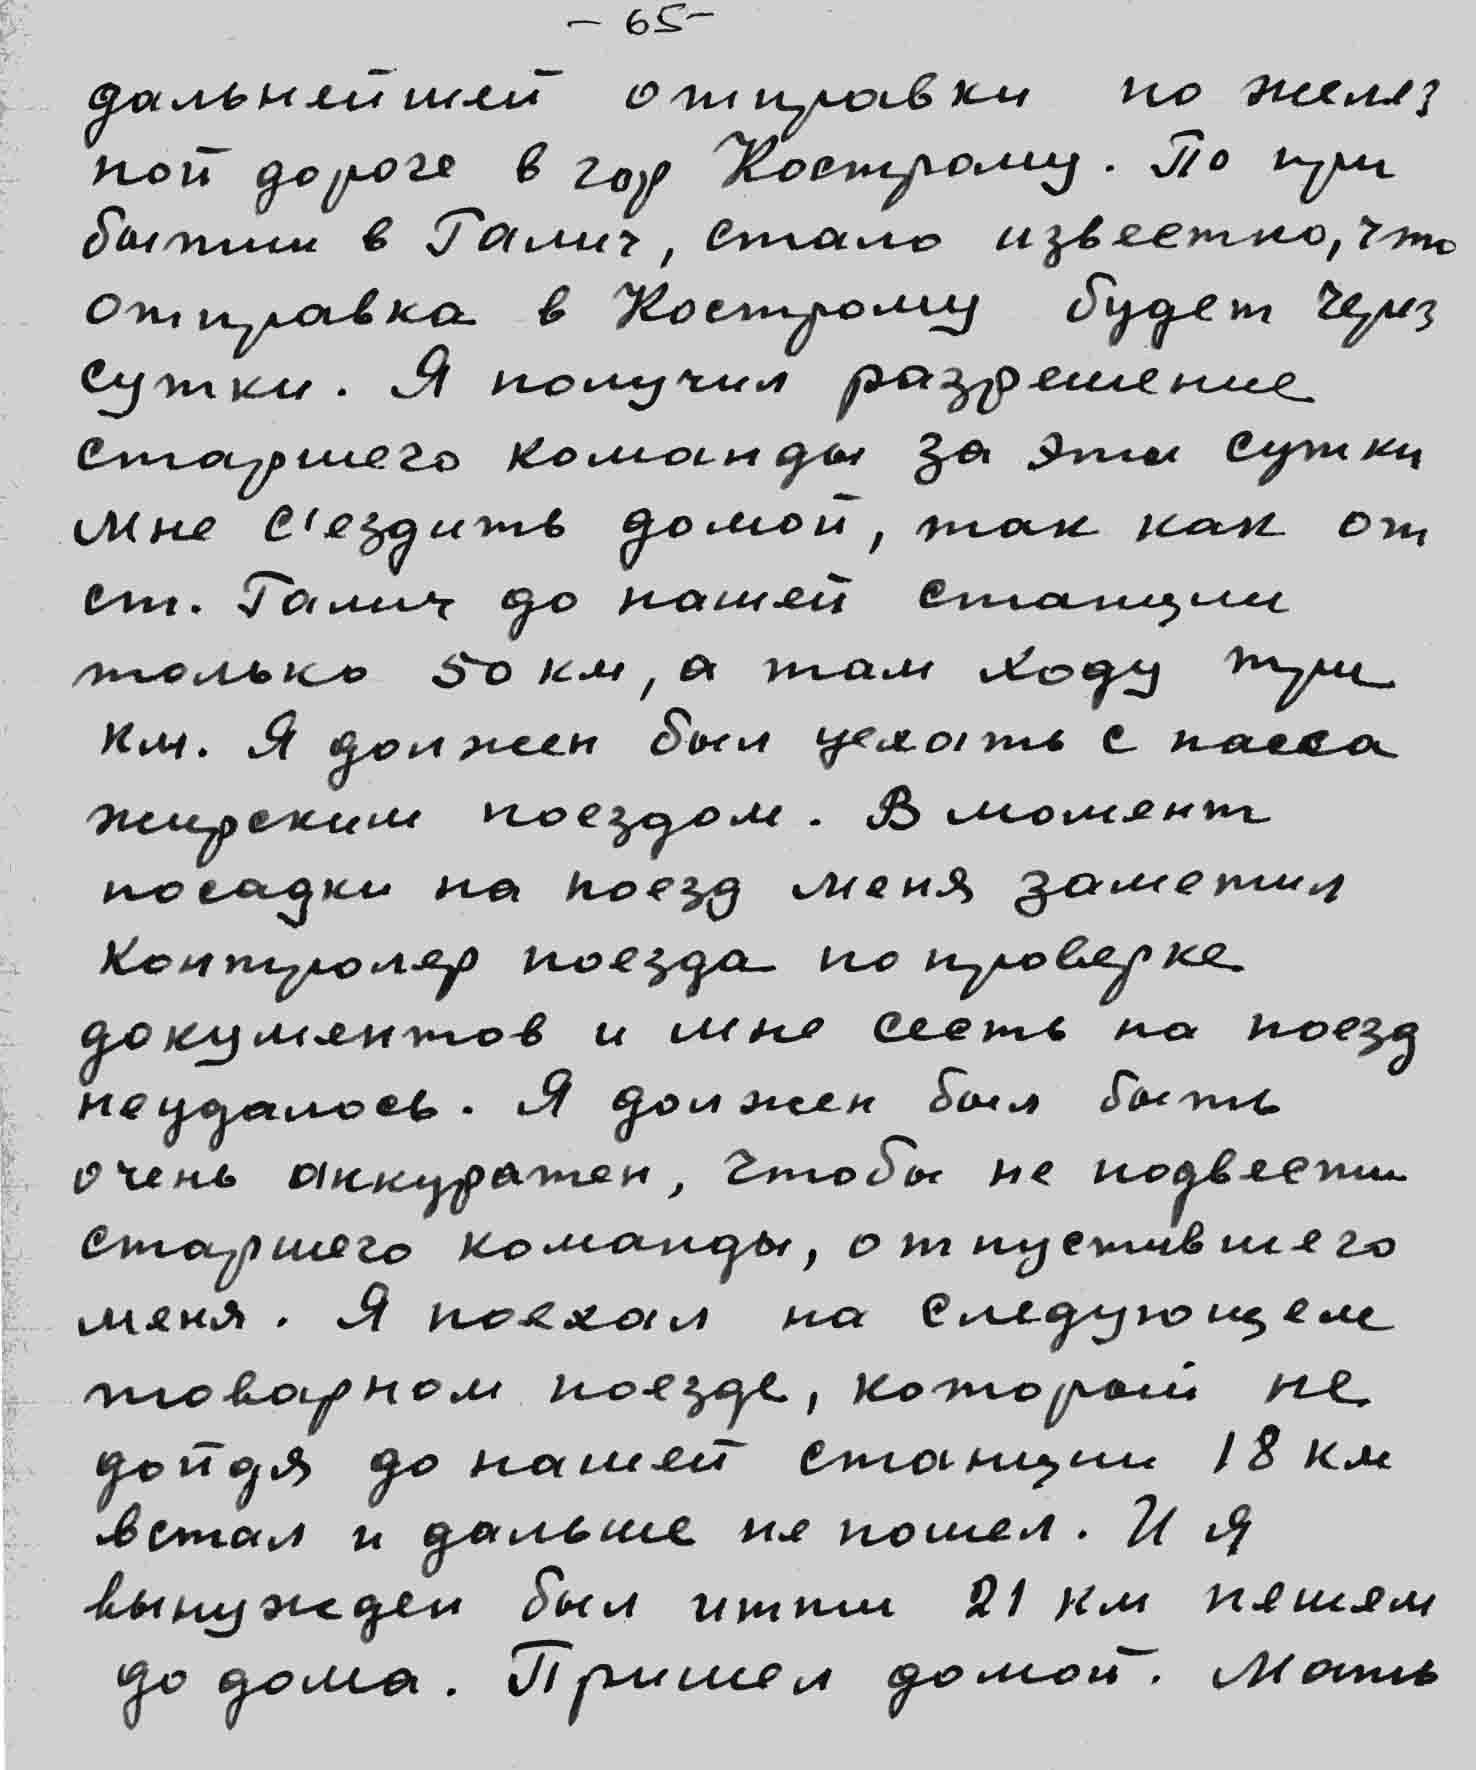 - 65 -
дальнейшей отправки по желез
ной дороге в гор Кострому. По при
бытии в Галич, стало известно, что
отправка в Кострому будет через
сутки. Я получил разрешение
старшего команды за эти сутки
мне с'ездить домой, так как от
ст. Галич до нашей станции
только 50 км, а там ходу три
км. Я должен был уехать с пасса
жирским поездом. В момент
посадки на поезд меня заметил
контролер поезда по проверке
документов и мне сесть на поезд
неудалось. Я должен был быть
очень аккуратен, чтобы не подвести
старшего команды, отпустившего
меня. Я поехал на следующем
товарном поезде, который не
дойдя до нашей станции 18 км
встал и дальше не пошел. И я
вынужден был итти 21 км пешем
до дома. Пришел домой. Мать